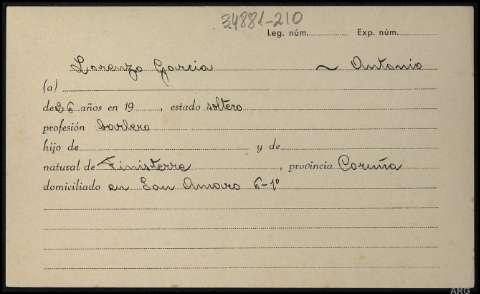 24881-210
Leg. núm. Exp. núm.
Lorenzo Garcia ~ Antonio
(a)
de 26 años en 19, estado soltero
profesión barbero
hijo de y de
natural de Finisterra, provincia Coruña
domiciliado en San Amaro 6-1º
ARG